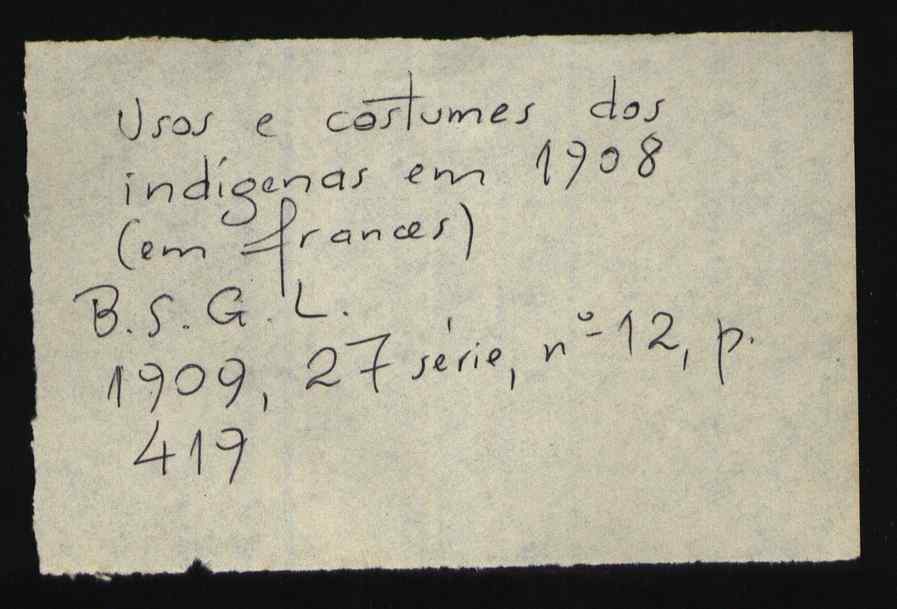 Usos e costumes dos
indígenas em 1908
(em frances)
B.S.G.L.
1909, 27 série, nº 12, p.
419